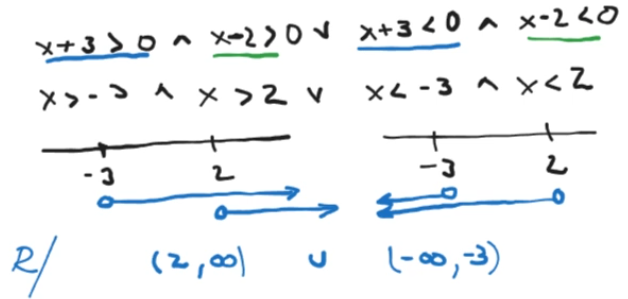 x+3>0 ∧ x-2>0 ∨ x+3<0 ∧ x-2<0
x>-3 ∧ x>2 ∨ x<-3 ∧ x<2
-3 2 -3 2
R/ (2,∞) ∪ (-∞,-3)